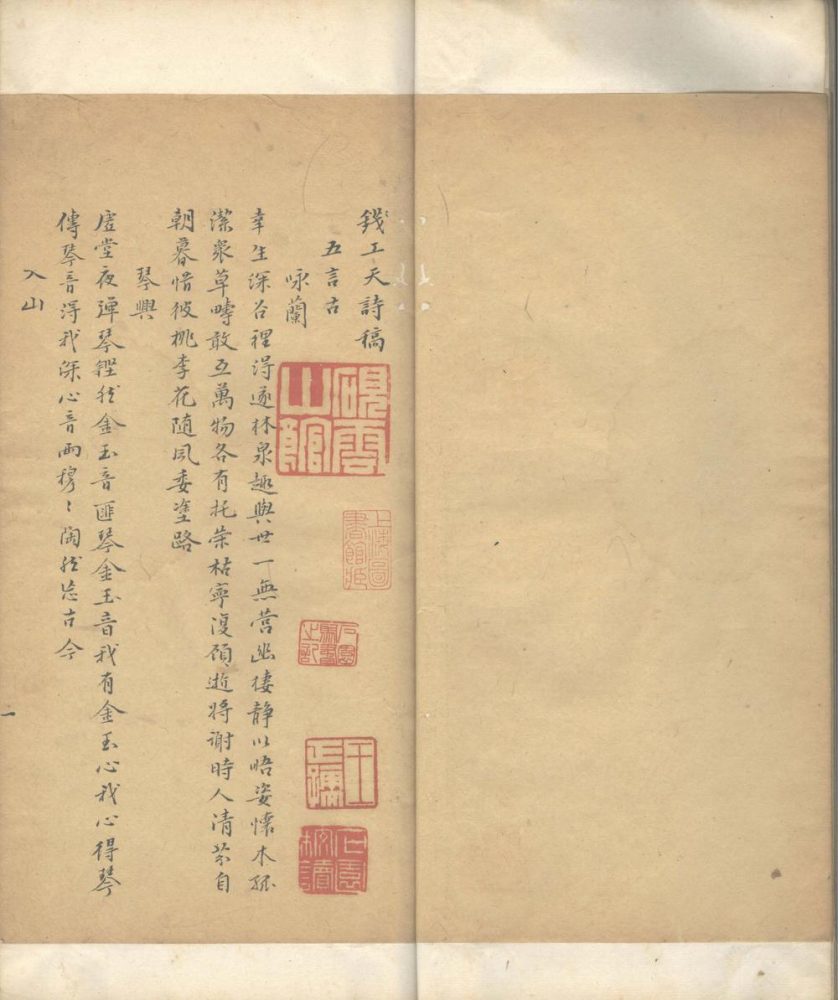 錢工天詩稿
五言古
咏蘭
幸生深谷裡得遂林泉趣與世一無營幽棲静以晤姿懷本孤
潔衆草疇敢互萬物各有托荣枯寧復顧逝将謝時人清芬自
朝暮惜彼桃李花随风委塗路
琴興
虚堂夜弹琴鏗然金玉音匪琴金玉音我有金玉心我心得琴
傳琴音得我深心音两穆〻陶然忘古今
入山
一
硯雲山館
上海圖書館藏
王